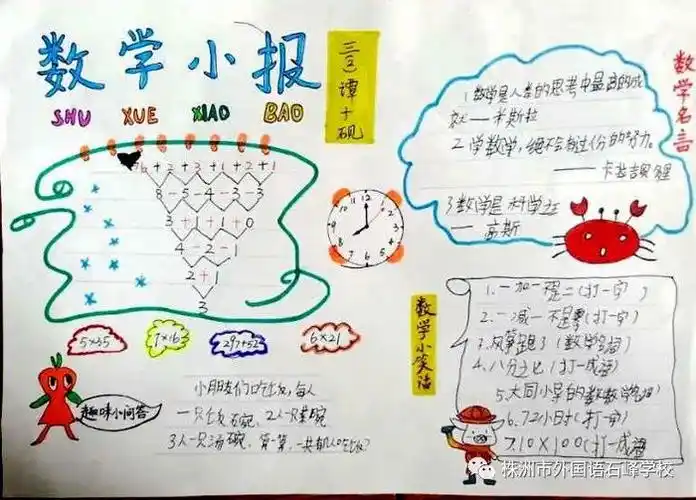 数学小报
SHU XUE XIAO BAO
三(3)谭十砚
数学名言
1.数学是人类的思考中最高的成
就——米斯拉
2.学数学,绝不会有过份的努力。
——卡拉
3.数学是科学之
— 高斯
6+2+3+1+2+1
8-5-4-3-3
3+1+1+0
4-2-1
2+1
3
12 1 2 3 4 5 6 7 8 9 10 11
5×35
7×163
297+52
6×21
趣味小问答
小朋友们吃饭,每人
一只饭碗、2人一只菜碗
3人一只汤碗,算一算,一共有几人吃饭?
数学小笑话
1.一加一不是二(打一字)
2.一减一不是零(打一字)
3.风筝跑了(数学名词)
4.八分之七(打一成语)
5.大同小异的数(数学名词)
6.72小时(打一字)
7.10×100(打一成语
株洲市外国语石峰学校